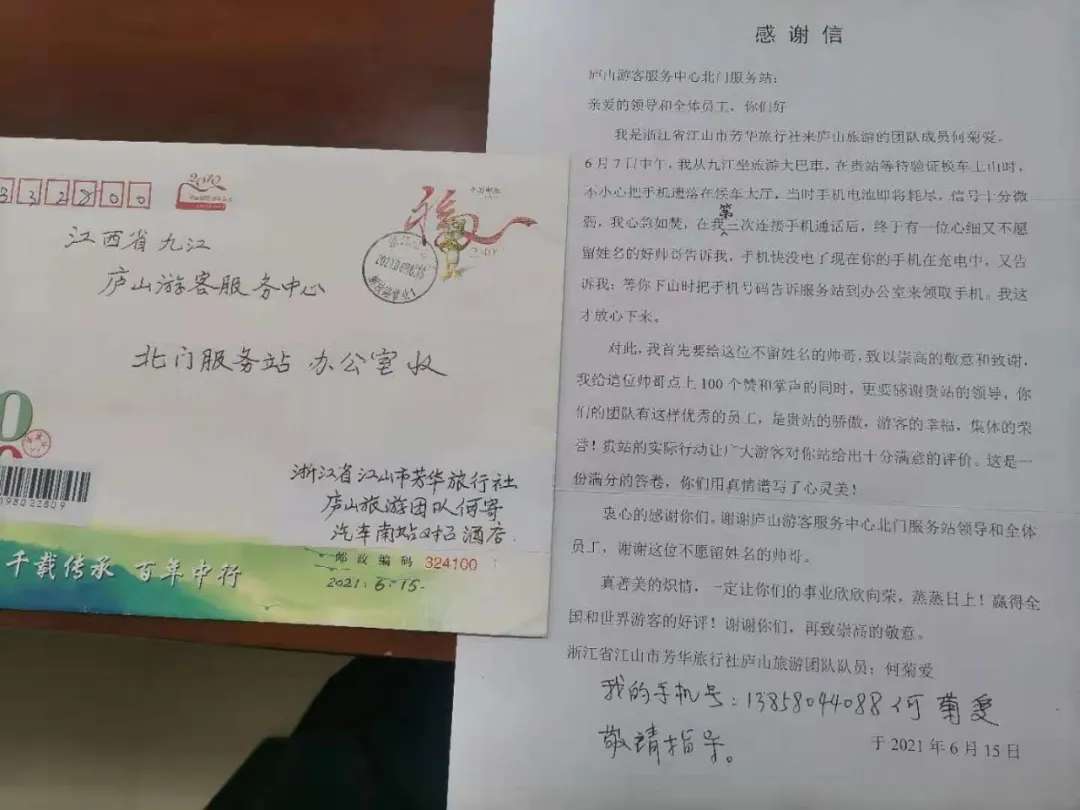 332800
2010
中国邮政
江西省九江
庐山游客服务中心
北门服务站 办公室收
浙江省江山市芳华旅行社
庐山旅游团队何寄
汽车南站对面酒店
邮政编码 324100
2021.6.15
千载传承 百年中行
感谢信
庐山游客服务中心北门服务站:
亲爱的领导和全体员工,你们好
我是浙江省江山市芳华旅行社来庐山旅游的团队成员何菊爱。
6月7日中午,我从九江坐旅游大巴車,在贵站等待验证换车上山时,
不小心把手机遗落在候车大厅,当时手机电池即将耗尽,信号十分微
弱,我心急如焚,在我第三次连接手机通话后,终于有一位心细又不愿
留姓名的好帅哥告诉我,手机快没电了现在你的手机在充电中,又告
诉我:等你下山时把手机号码告诉服务站到办公室来领取手机。我这
才放心下来。
对此,我首先要给这位不留姓名的帅哥,致以崇高的敬意和致谢,
我给這位帅哥点上100个赞和掌声的同时,更要感谢贵站的领导,你
们的团队有这样优秀的员工,是贵站的骄傲,游客的幸福,集体的荣
誉!贵站的实际行动让广大游客对你站给出十分满意的评价。这是一
份满分的答卷,你们用真情谱写了心灵美!
衷心的感谢你们。谢谢庐山游客服务中心北门服务站领导和全体
员工,谢谢这位不愿留姓名的帅哥。
真善美的炽情,一定让你们的事业欣欣向荣,蒸蒸日上!赢得全
国和世界游客的好评!谢谢你们,再致崇高的敬意。
浙江省江山市芳华旅行社庐山旅游团队队员:何菊爱
我的手机号:13858044088何菊爱
敬请指导。
于2021年6月15日